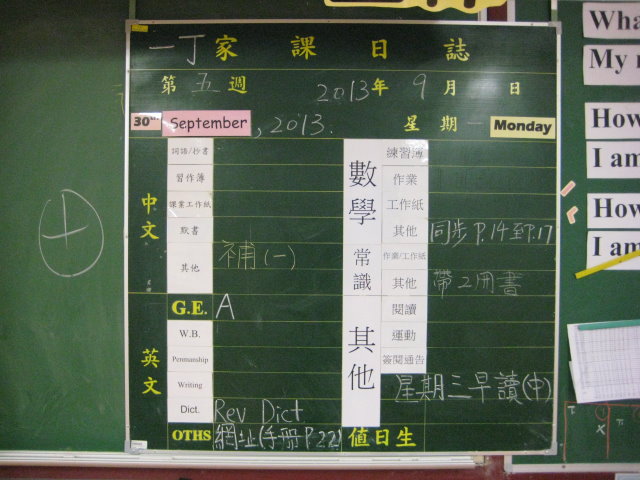 一丁家課日誌
第五週 2013年9月 日
30th September, 2013. 星期一 Monday
中文
詞語/抄書
習作簿
課業工作紙
默書
其他 補(一)
G.E. A
英文
W.B.
Penmanship
Writing
Dict. Rev Dict
OTHS 網址(手冊P.22)
數學
練習簿
作業
工作紙
其他 同步P.14至P.17
常識
作業/工作紙
其他 帶2冊書
其他
閱讀
運動
簽閱通告
星期三早讀(中)
值日生
My
How
I am
How
I am